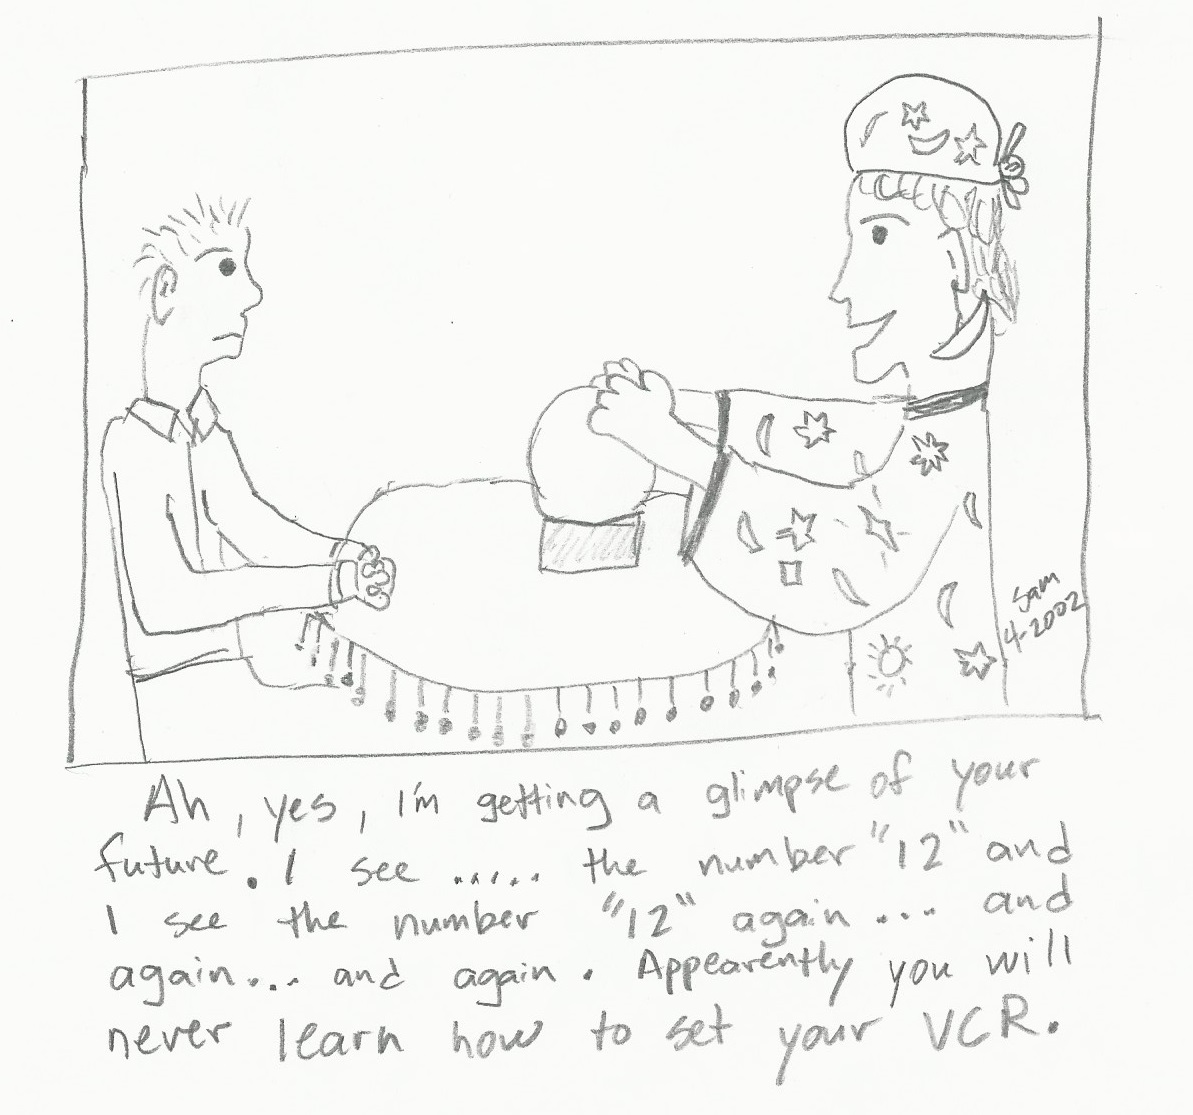 Sam
4-2002
Ah, yes, I'm getting a glimpse of your
future. I see ..... the number "12" and
I see the number "12" again ... and
again... and again. Appearently you will
never learn how to set your VCR.